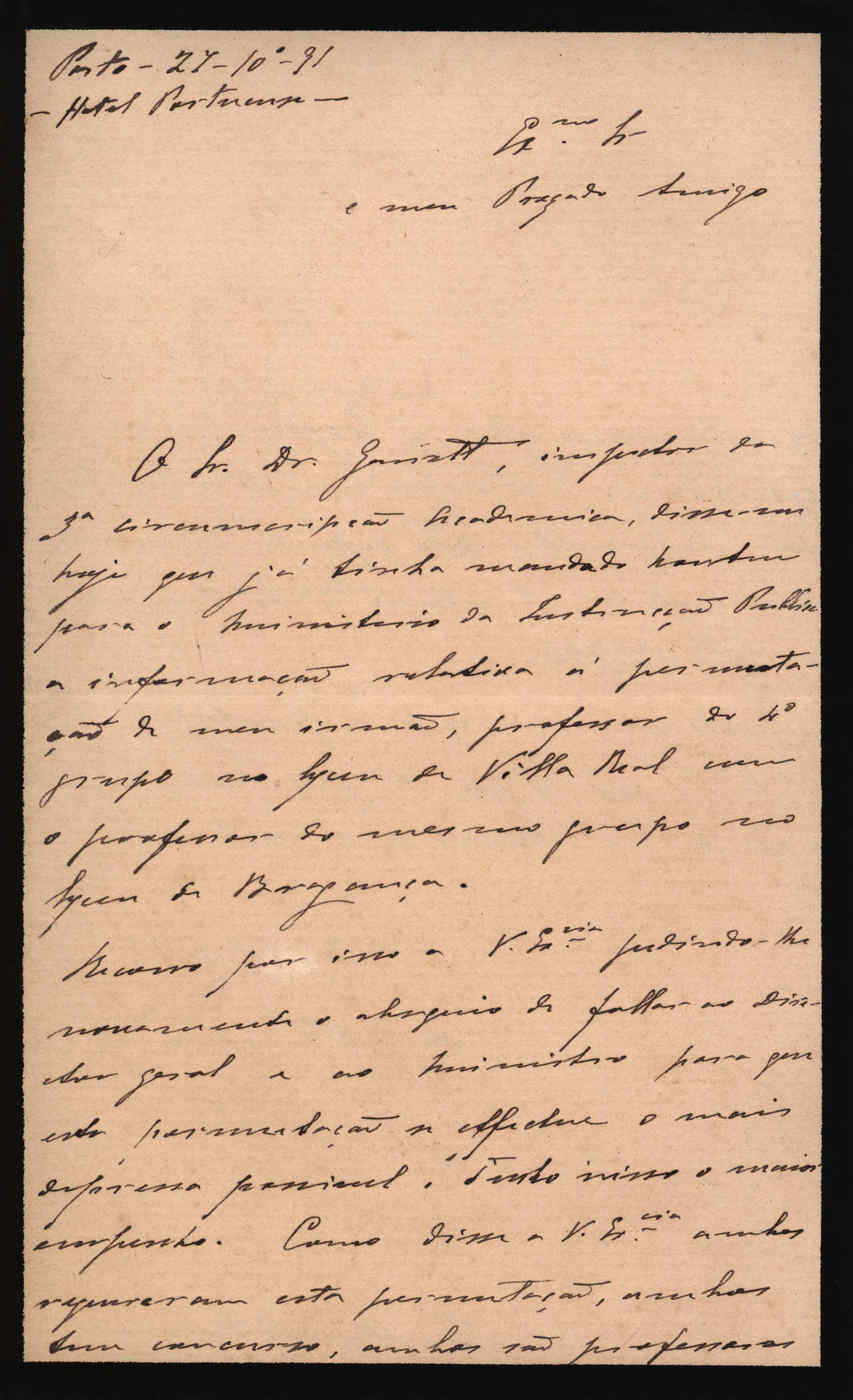 Porto - 27-10º-91
- Hotel Portuense -
Ex.mo Sr
e meu Prezado Amigo
O Sr. Dr. , inspector da
3ª circumscripção Academica, disse-me
hoje que já tinha mandado hontem
para o Ministerio da Instrucção Publica
a informação relativa á permuta-
ção de meu irmão, professor do 4º
grupo no lyceu de Villa Real com
o professor do mesmo grupo no
lyceu de Bragança.
Recorro por isso a V. Ex.cia pedindo-lhe
novamente o obsequio de fallar ao dire-
ctor geral e ao Ministro para que
esta permutação se effectue o mais
depressa possivel. Tenho nisso o maior
empenho. Como disse a V. Ex.cia ambos
requereram esta permutação, ambos
tem concurso, ambos são professores